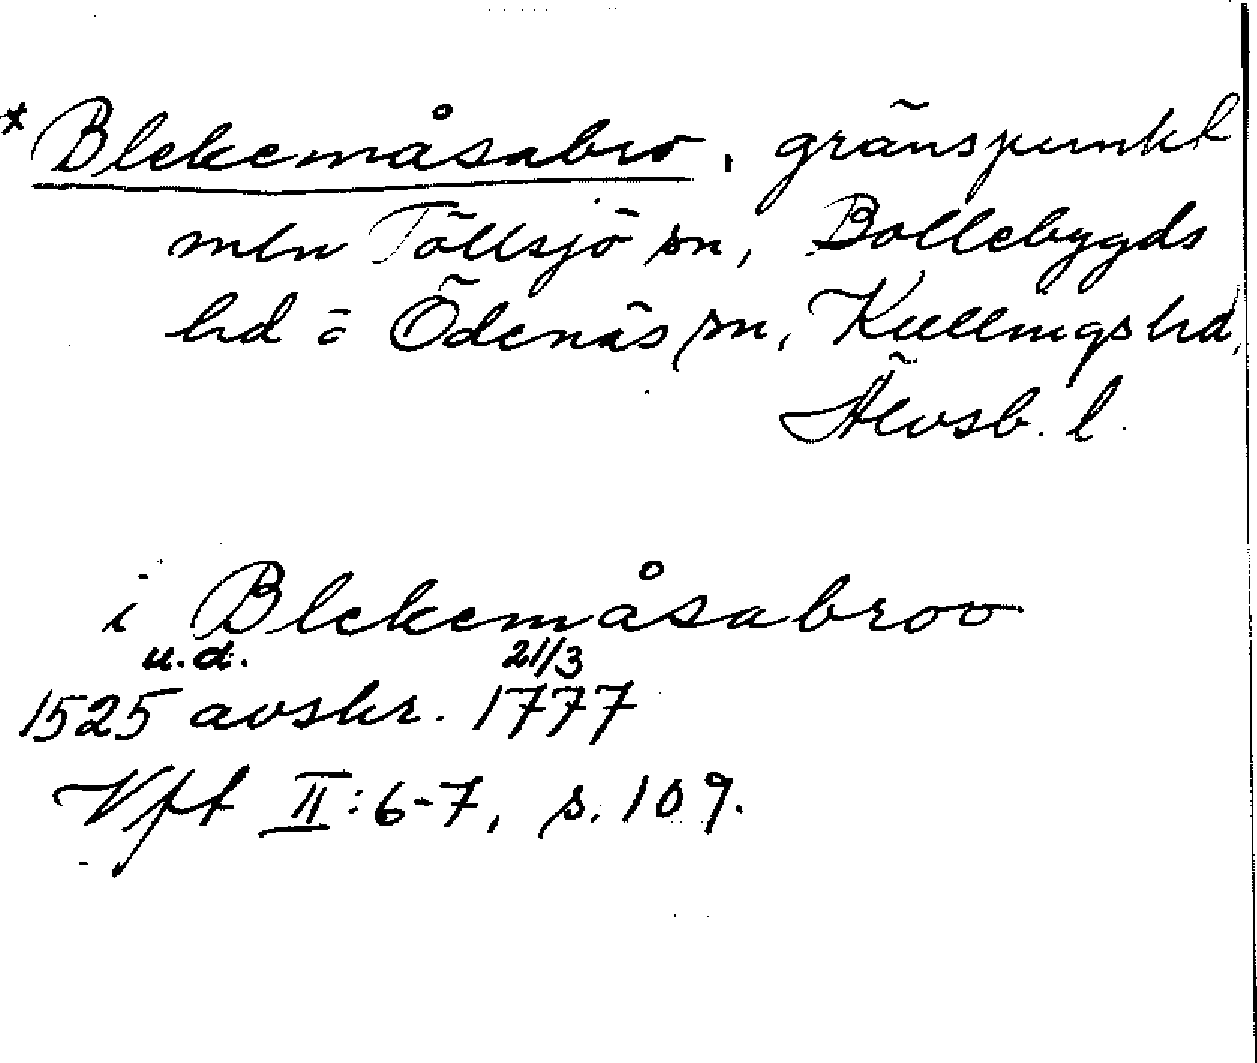 * Blekemåsabro, gränspunkt
mln Töllsjö sn, Bollebygds
hd o Ödenäs sn, Kullings hd,
Älvsb. l.
i Blekemåsabroo
u.d. 21/3
1525 avskr. 1777
Vft II:6-7, s. 109.